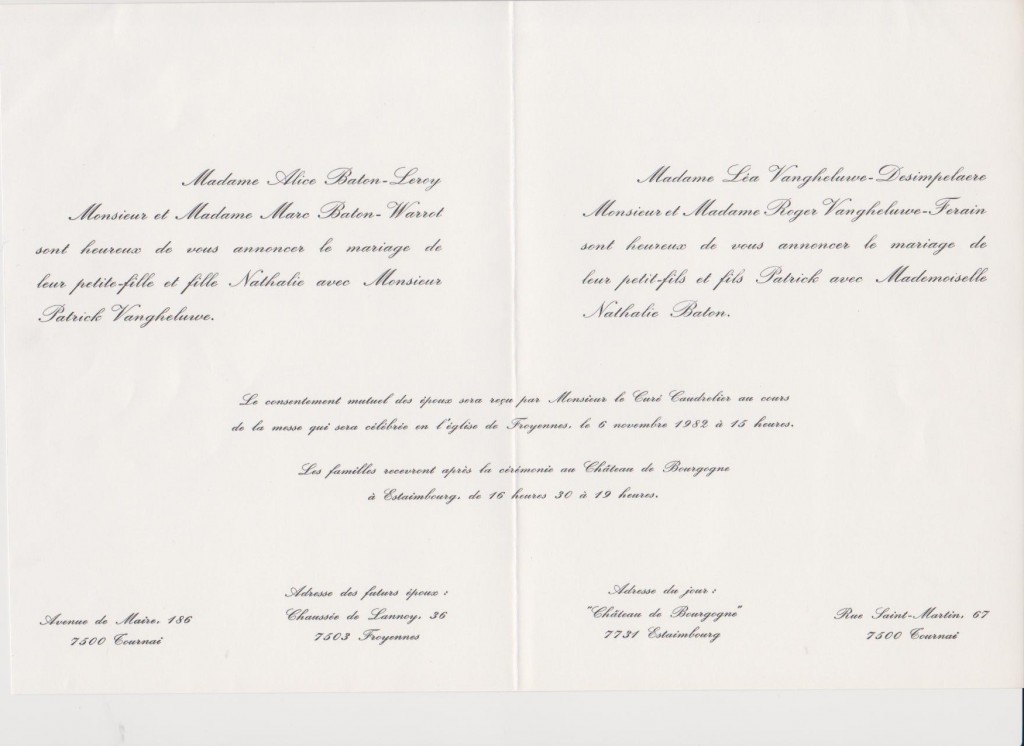 Madame Alice Baton-Leroy
Monsieur et Madame Marc Baton-Warrot
sont heureux de vous annoncer le mariage de
leur petite-fille et fille Nathalie avec Monsieur
Patrick Vangheluwe.
Madame Léa Vangheluwe-Desimpelaere
Monsieur et Madame Roger Vangheluwe-Ferain
sont heureux de vous annoncer le mariage de
leur petit-fils et fils Patrick avec Mademoiselle
Nathalie Baton.
Le consentement mutuel des époux sera reçu par Monsieur le Curé Caudrelier au cours
de la messe qui sera célébrée en l'église de Froyennes, le 6 novembre 1982 à 15 heures.
Les familles recevront après la cérémonie au Château de Bourgogne
à Estaimbourg, de 16 heures 30 à 19 heures.
Avenue de Maire, 186
7500 Tournai
Adresse des futurs époux :
Chaussée de Lannoy, 36
7503 Froyennes
Adresse du jour :
"Château de Bourgogne"
7731 Estaimbourg
Rue Saint-Martin, 67
7500 Tournai